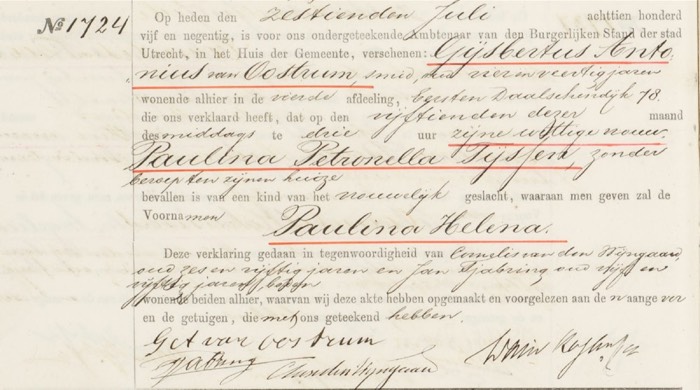 № 1724
Op heden den zestienden Juli achttien honderd
vijf en negentig, is voor ons ondergeteekende Ambtenaar van den Burgerlijken Stand der stad
Utrecht, in het Huis der Gemeente, verschenen: Gijsbertus Anto-
nius van Oostrum, smid, oud vier en veertig jaren
wonende alhier in de vierde afdeeling, Eersten Daalschendijk 78.
die ons verklaard heeft, dat op den vijftienden dezer maand
des middags te drie uur zijne wettige vrouw.
Paulina Petronella Tijssen, zonder
beroep ten zijnen huize
bevallen is van een kind van het vrouwelijk geslacht, waaraan men geven zal de
Voornamen
Paulina Helena.
Deze verklaring gedaan in tegenwoordigheid van Cornelis van den Wijngaard,
oud zes en vijftig jaren en Jan Tjabring oud vijf en
vijftig jaren
wonende beiden alhier, waarvan wij deze akte hebben opgemaakt en voorgelezen aan den aangever
en de getuigen, die met ons geteekend hebben.
G A van Oostrum